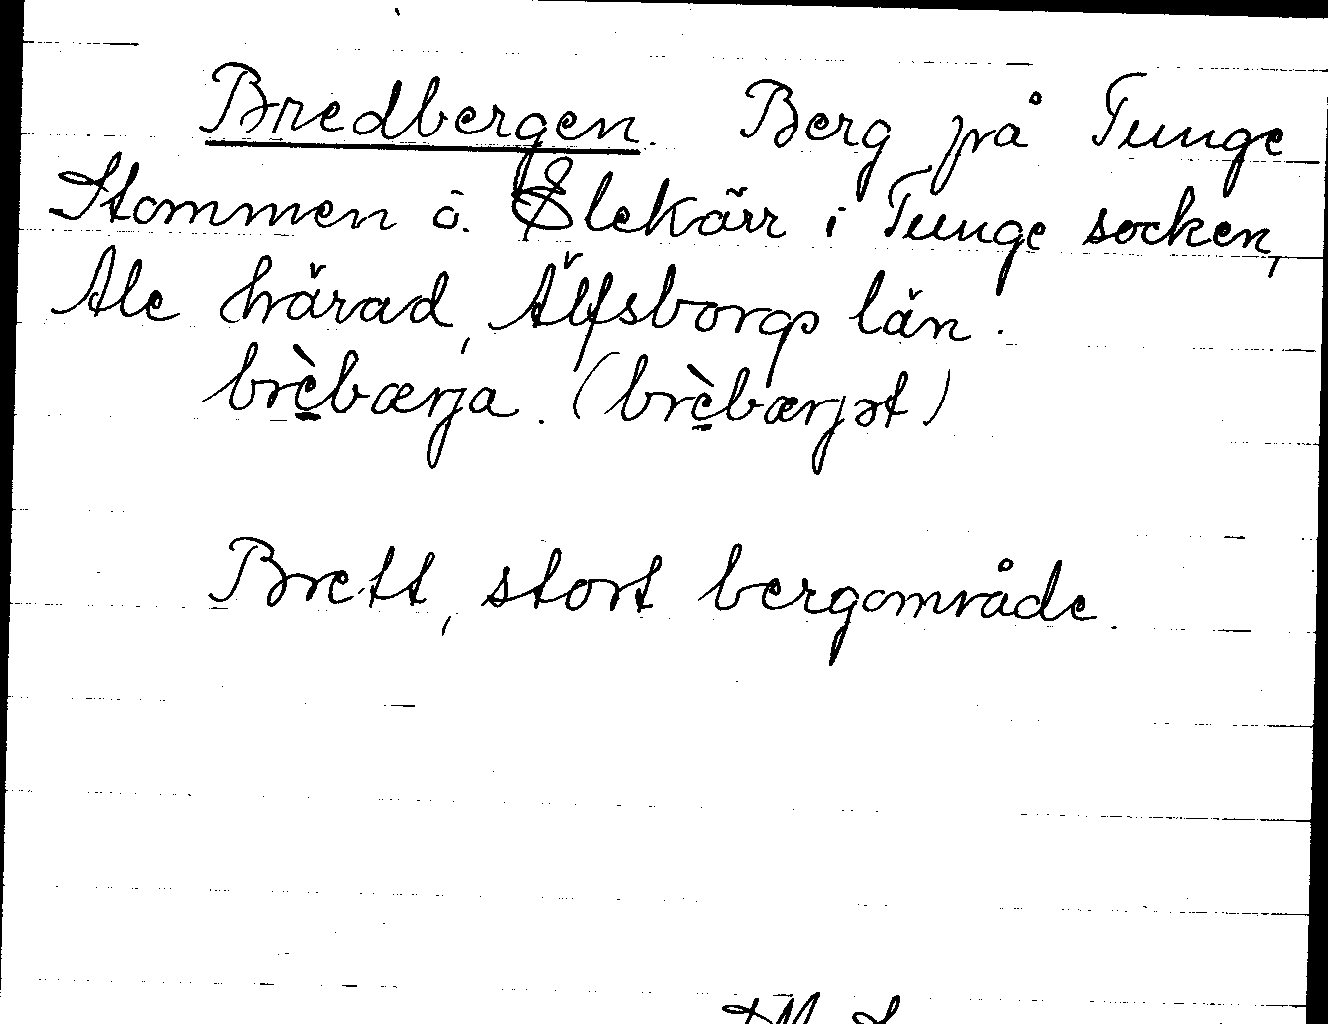 Bredbergen. Berg på Tunge
Stommen ö. Slekärr i Tunge socken,
Ale härad, Älfsborgs län.
brè̱bærja. (brè̱bærjət)
Brett, stort bergområde.